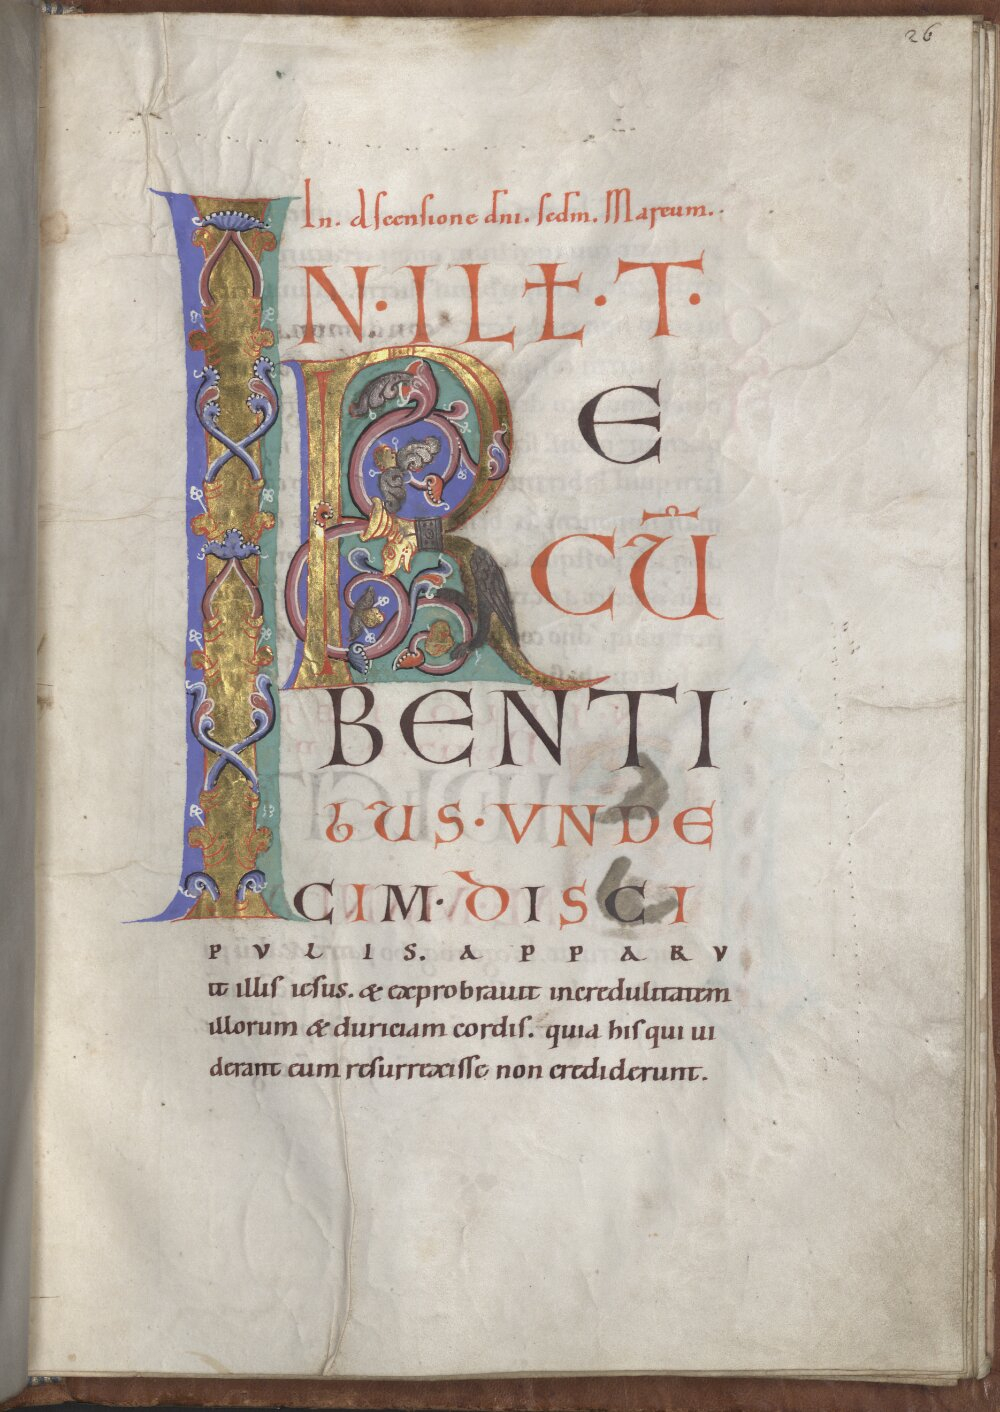 26
In. ascensione dñi. sedm. Marcum.
IN·ILŁ·T·
RE
CŪ
BENTI
BUS·VNDE
CIM·DISCI
PVLIS. APPARV
it illis iesus. & exprobrauit incredulitatem
illorum & duriciam cordis. quia his qui ui
derant eum resurrexisse non crediderunt.